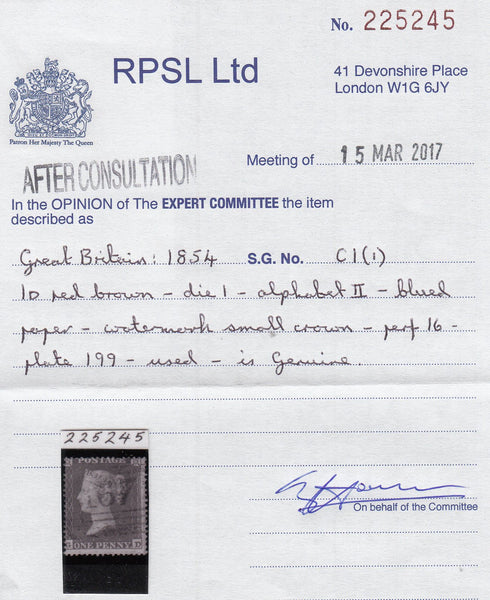 No. 225245
RPSL Ltd
41 Devonshire Place
London W1G 6JY
Patron Her Majesty The Queen
AFTER CONSULTATION
Meeting of 15 MAR 2017
In the OPINION of The EXPERT COMMITTEE the item
described as
Great Britain: 1854 S.G. No. C1(1)
1D red brown - die 1 - alphabet II - blued
paper - watermark small crown - perf 16 -
plate 199 - used - is Genuine.
225245
POSTAGE
ONE PENNY D
On behalf of the Committee